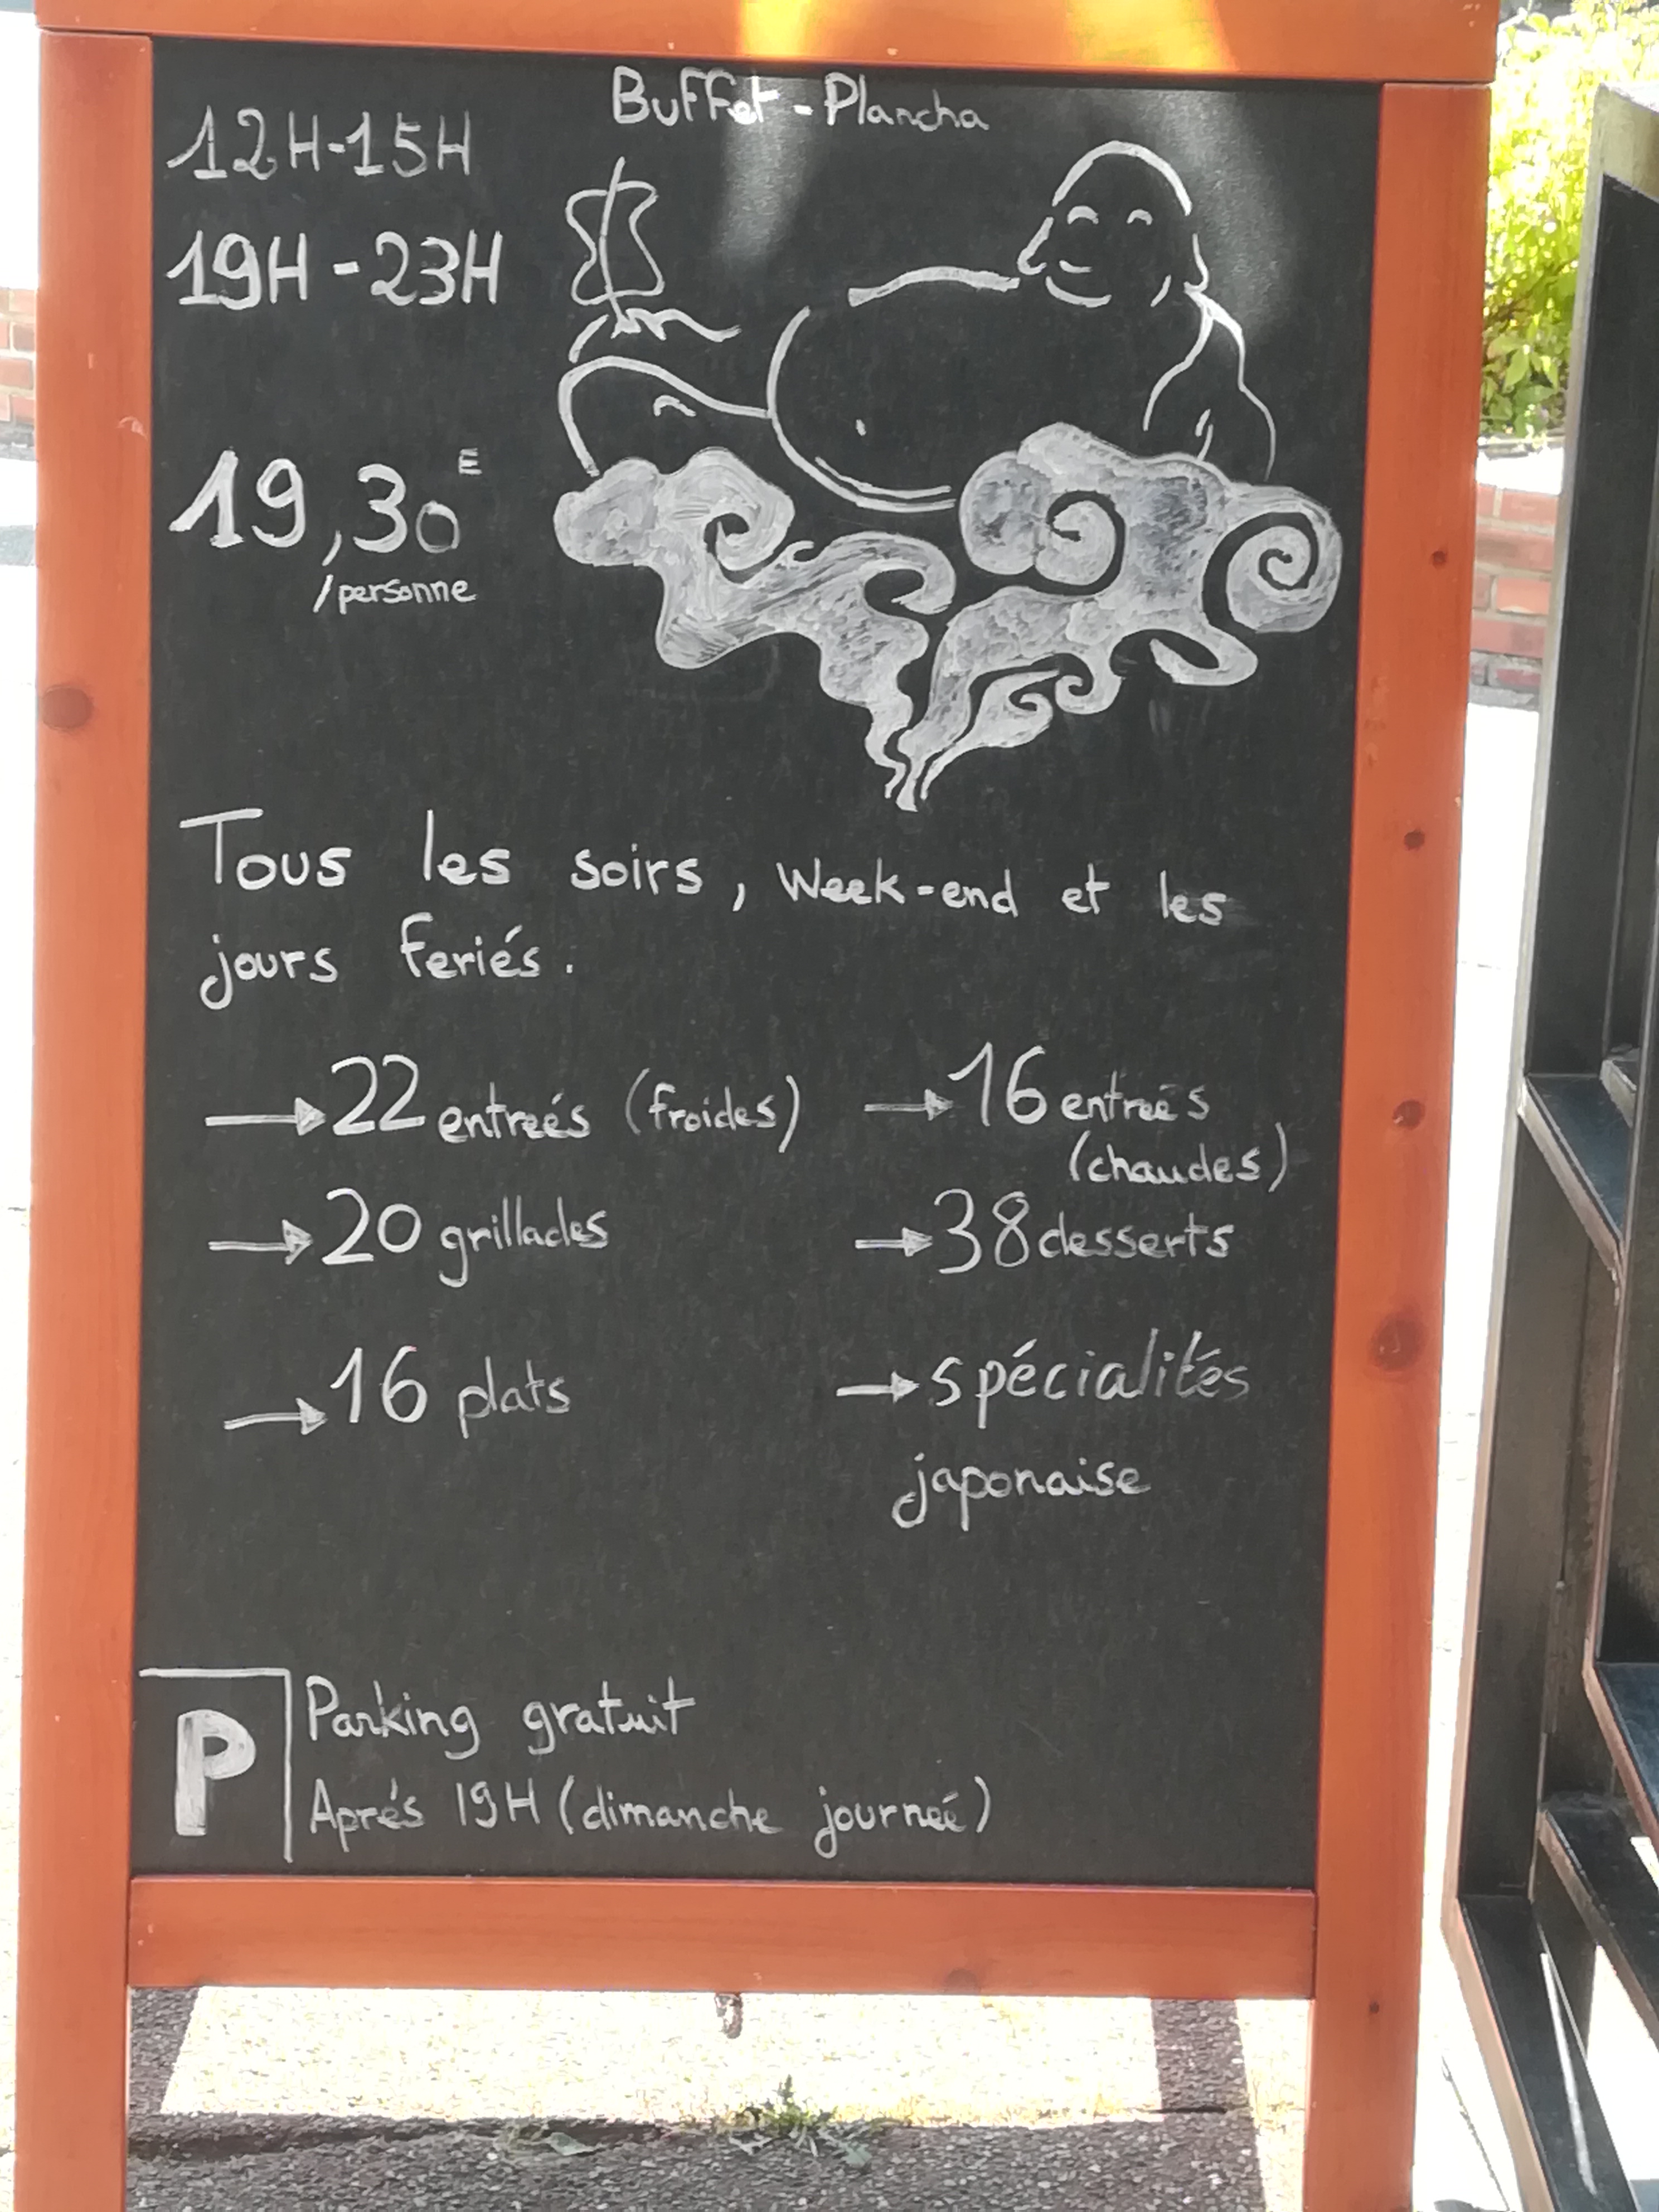 Buffet - Plancha
12H-15H
19H-23H
19,30E
/personne
Tous les soirs, Week-end et les
jours feriés.
→22 entreés (froides)
→16 entreés
(chaudes)
→20 grillades
→38 desserts
→16 plats
→spécialités
japonaise
P
Parking gratuit
Aprés 19H (dimanche journeé)